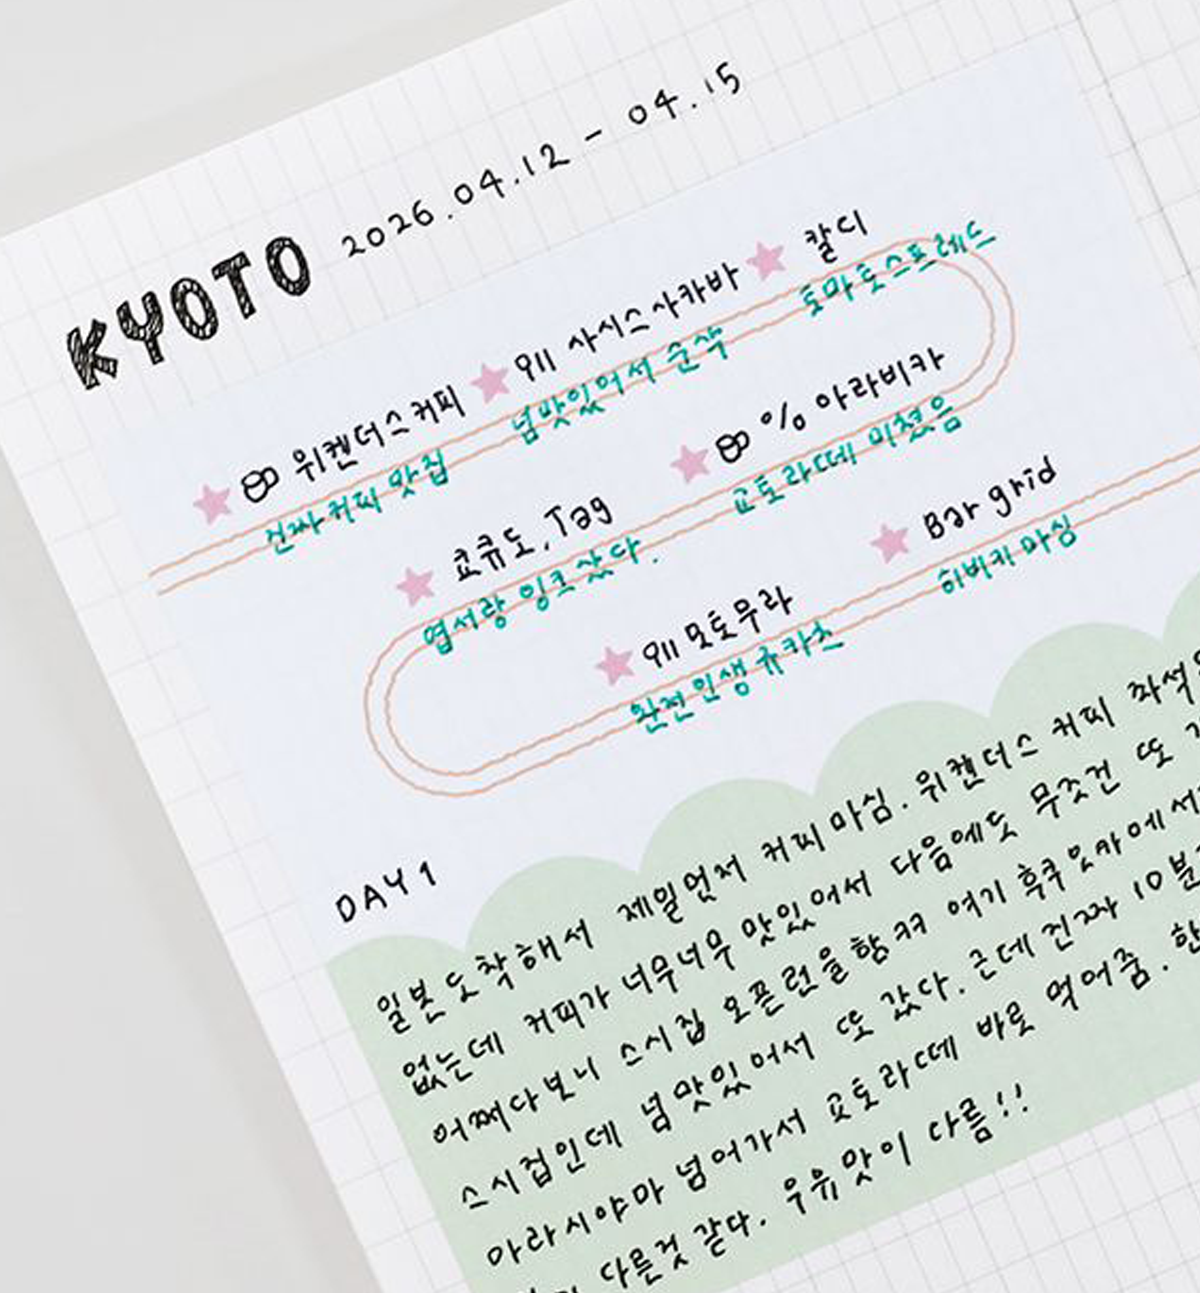 KYOTO 2026.04.12 - 04.15
위켄더스커피 사시스사카바 칼디
진짜커피 맛집 넘맛있어서 순삭 토마토스프레드
쿄큐도, Tag % 아라비카
엽서랑 잉크 샀다. 교토라떼 미쳤음
모토무라 Bar grid
완전인생규카츠 히비키 마심
DAY 1
일본 도착해서 제일먼저 커피 마심. 위켄더스 커피 좌석
없는데 커피가 너무너무 맛있어서 다음에도 무조건 또
어쩌다보니 스시집 오픈런을함ㅋㅋ 여기 후쿠오카에서
스시집인데 넘맛있어서 또 갔다. 근데 진짜 10분
아라시야마 넘어가서 교토라떼 바로 먹어줌.
다른것 같다. 우유맛이 다름!!